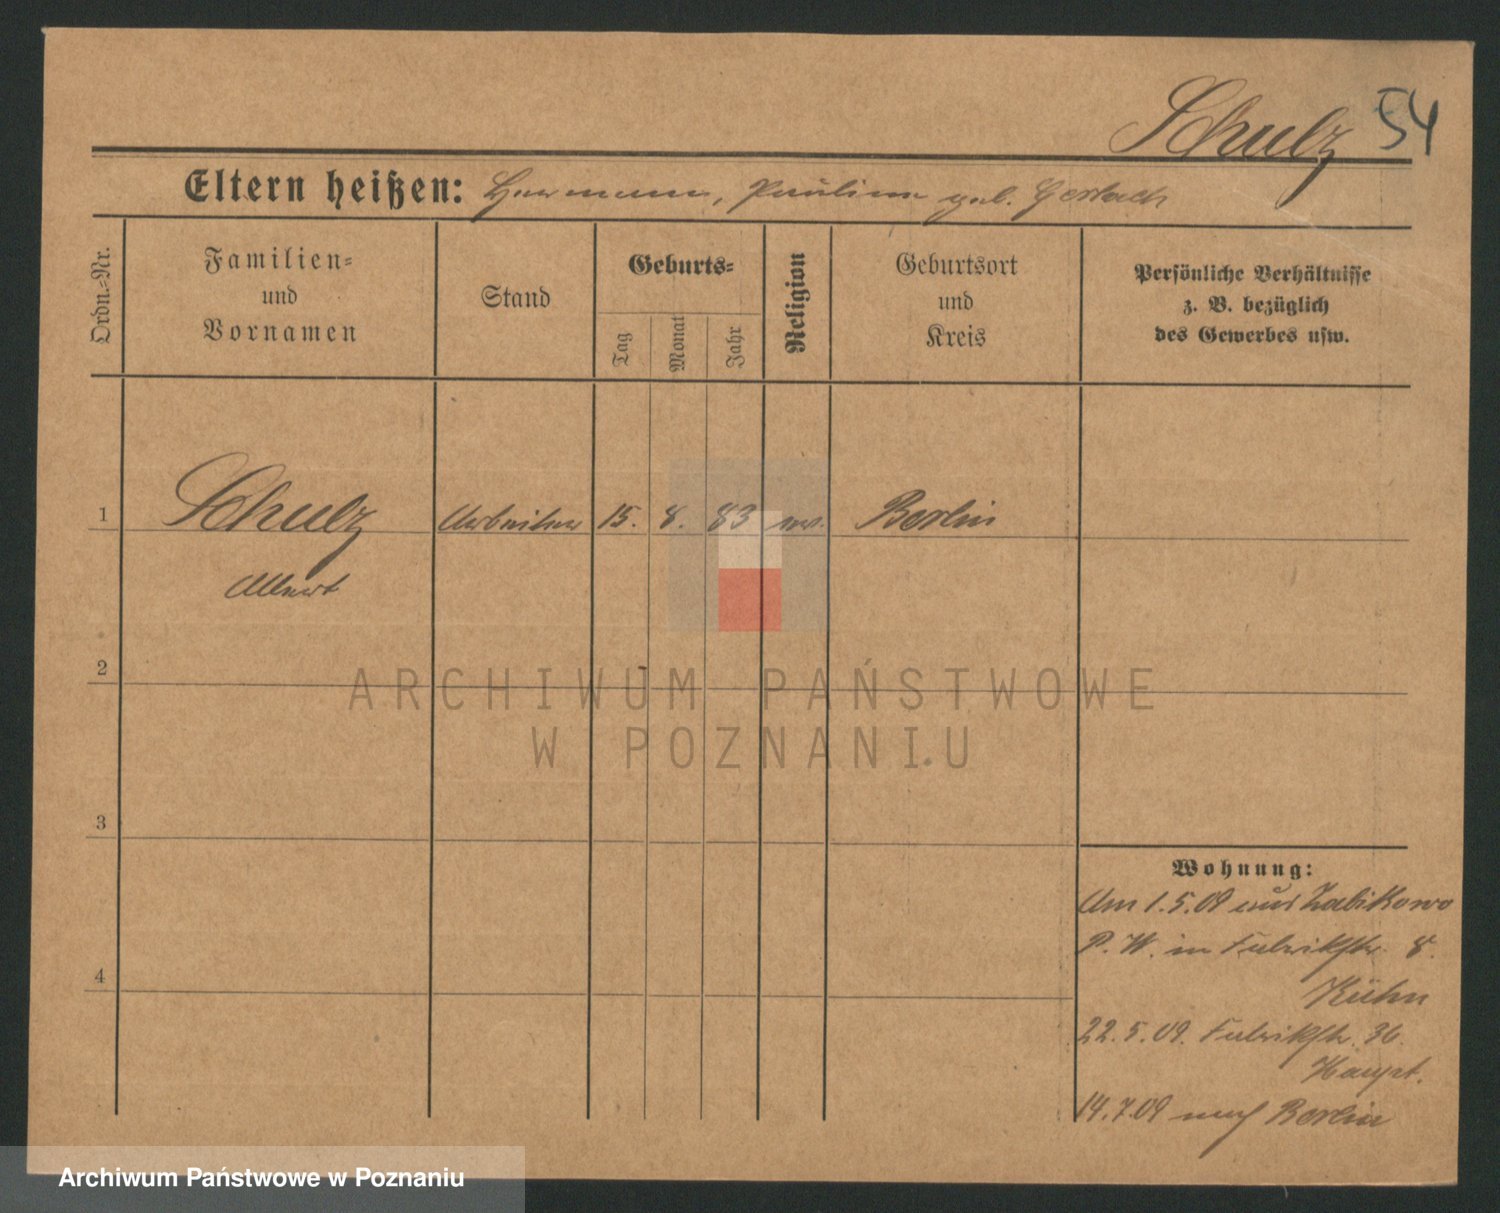 Schulz 54
Eltern heißen: Hermann, Pauline geb. Gerlach
Ordn.-Nr.
Familien-
und
Vornamen
Stand
Geburts-
Tag
Monat
Jahr
Religion
Geburtsort
und
Kreis
Persönliche Verhältnisse
z. B. bezüglich
des Gewerbes usw.
1 Schulz Arbeiter 15. 8. 83 ev. Berlin
Albert
2
ARCHIWUM PAŃSTWOWE
W POZNANIU
3
Wohnung:
Am 1.5.09 aus Zabikowo
P. W. in Fabrikstr. 8.
4
Kühn
22.5.09. Fabrikstr. 36.
Haupt.
14.7.09 nach Berlin
Archiwum Państwowe w Poznaniu